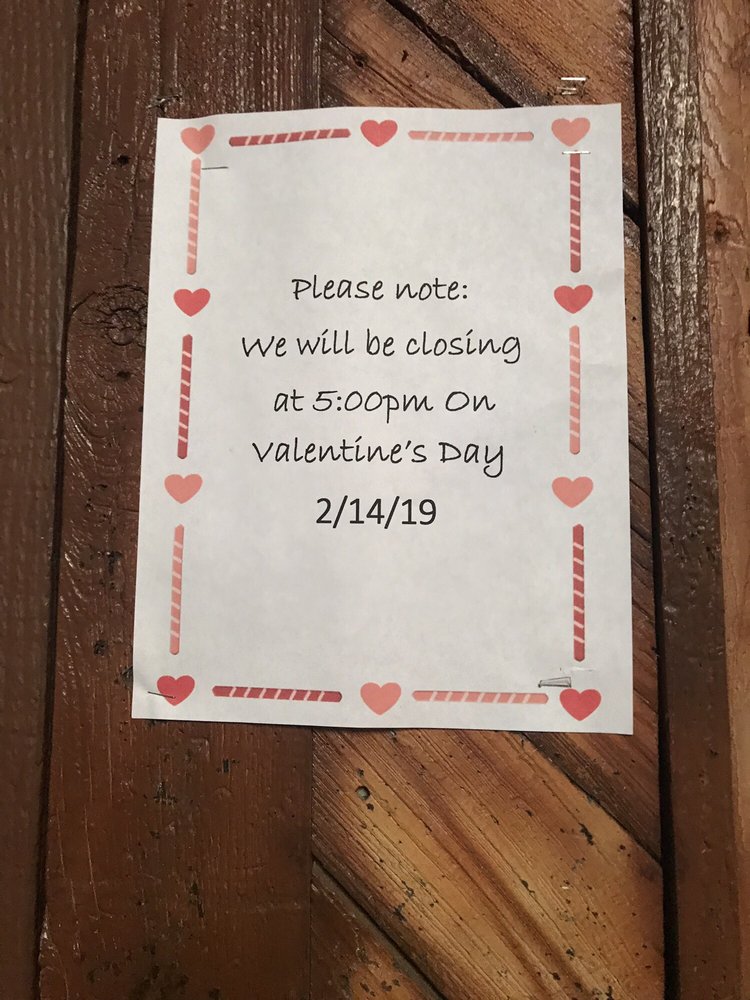 Please note:
We will be closing
at 5:00pm On
Valentine's Day
2/14/19